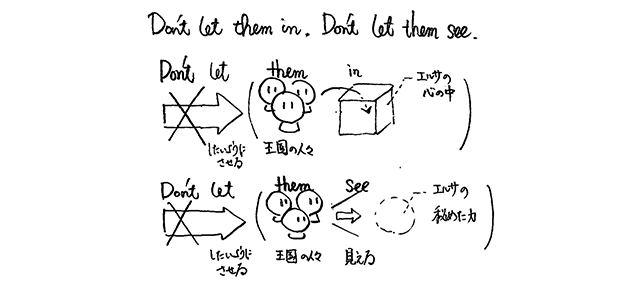 Don't let them in. Don't let them see.
Don't let
them
in
エルサの
心の中
したいように
させる
王国の人々
Don't let
them
see
エルサの
秘めた力
したいように
させる
王国の人々
見える